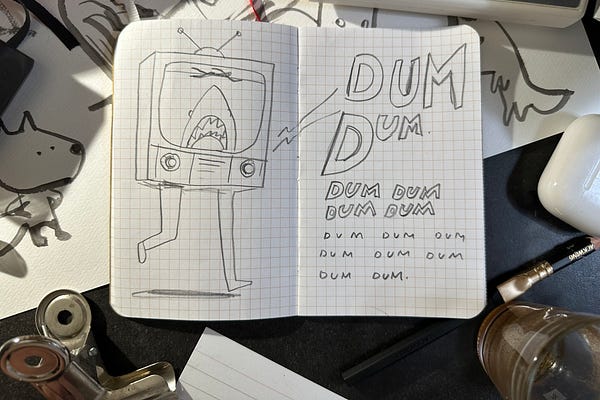 DUM
DUM.
DUM DUM
DUM DUM
DUM DUM DUM
DUM DUM DUM
DUM DUM.